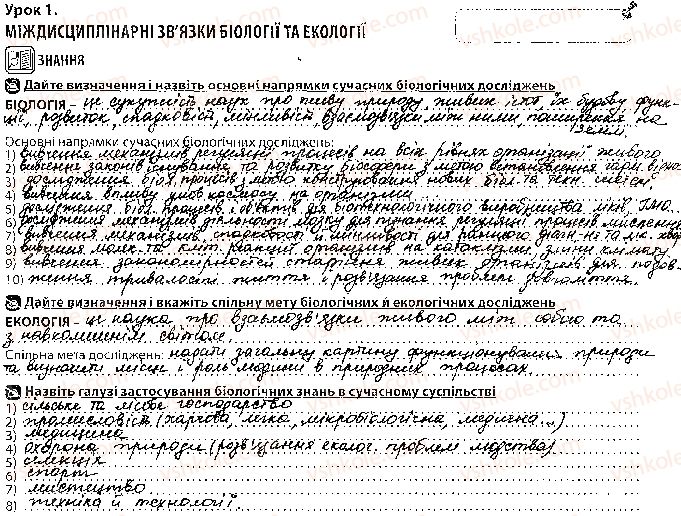 Урок 1.
МІЖДИСЦИПЛІНАРНІ ЗВ'ЯЗКИ БІОЛОГІЇ ТА ЕКОЛОГІЇ
ЗНАННЯ
Дайте визначення і назвіть основні напрямки сучасних біологічних досліджень
БІОЛОГІЯ – це сукупність наук про живу природу, живих істот, їх будову, функ-
ції, розвиток, спадковість, мінливість, взаємозв'язки між ними, поширення на
Землі.
Основні напрямки сучасних біологічних досліджень:
1) вивчення механізмів регуляції процесів на всіх рівнях організації живого
2) вивчення законів існування та розвитку біосфери з метою встановлення
3) дослідження біол. процесів з метою конструювання нових біол. та техн. систем.
4) вивчення впливу умов космосу на організми
5) дослідження біол. процесів і об'єктів для біотехнологічного виробництва ліків, ГМО...
6) дослідження механізмів діяльності мозку для пізнання регуляції процесів мислення
7) вивчення механізмів спадковості й мінливості для раннього
8) вивчення молек. та кліт. реакцій організмів на катаклізми, зміни клімату
9) вивчення закономірностей старіння живих організмів для подов-
10) ження тривалості життя і розв'язання проблеми довголіття.
Дайте визначення і вкажіть спільну мету біологічних й екологічних досліджень
ЕКОЛОГІЯ – це наука про взаємозв'язки живого між собою та
з навколишнім світом.
Спільна мета досліджень: надати загальну картину функціонування природи
та визначити місце і роль людини в природних процесах.
Назвіть галузі застосування біологічних знань в сучасному суспільстві
1) сільське та лісове господарство
2) промисловість (харчова, легка, мікробіологічна, медична...)
3) медицина
4) охорона природи (розв'язання еколог. проблем людства)
5) селекція
6) спорт
7) мистецтво
8) техніка й технології.
vshkole.com